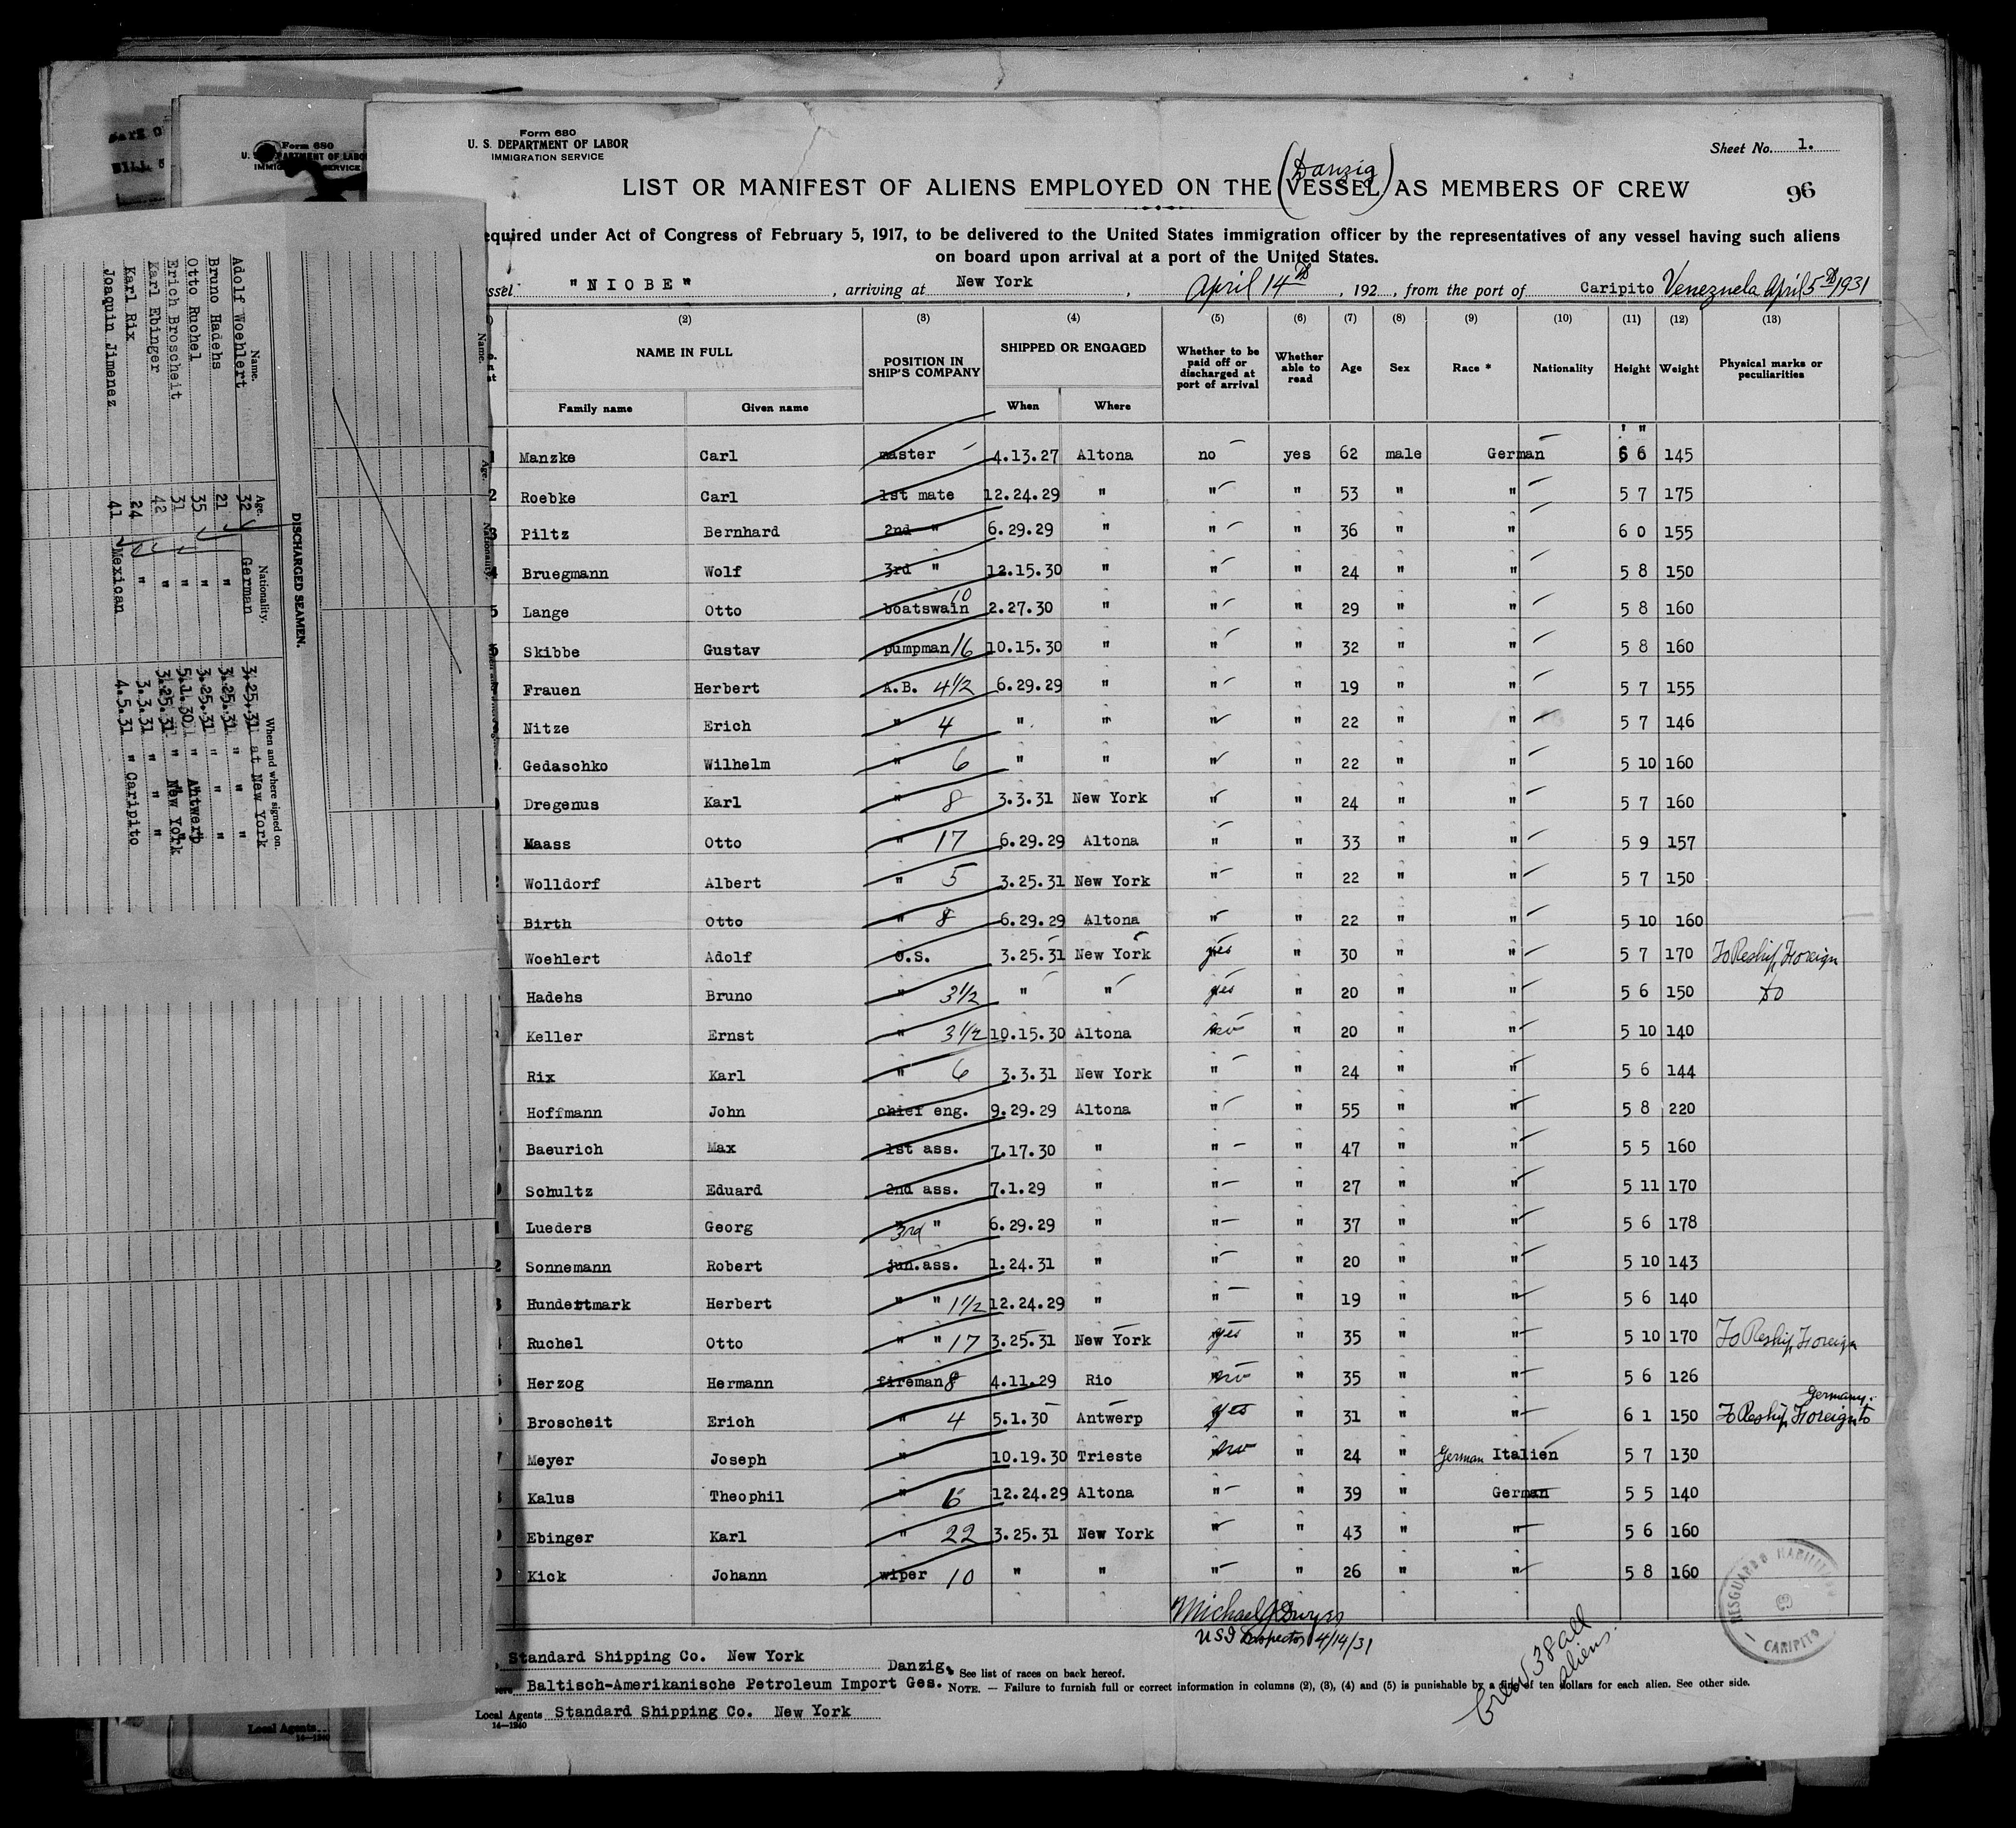 Form 680
U. S. DEPARTMENT OF LABOR
IMMIGRATION SERVICE
Sheet No. 1.
96
(Danzig)
LIST OR MANIFEST OF ALIENS EMPLOYED ON THE VESSEL AS MEMBERS OF CREW
equired under Act of Congress of February 5, 1917, to be delivered to the United States immigration officer by the representatives of any vessel having such aliens
on board upon arrival at a port of the United States.
ssel "NIOBE", arriving at New York, April 14th, 192 , from the port of Caripito Venezuela April 5th 1931
(2) (3) (4) (5) (6) (7) (8) (9) (10) (11) (12) (13)
NAME IN FULL POSITION IN SHIP'S COMPANY SHIPPED OR ENGAGED Whether to be paid off or discharged at port of arrival Whether able to read Age Sex Race * Nationality Height Weight Physical marks or peculiarities
Family name Given name When Where
' "
1 Manzke Carl master 4.13.27 Altona no yes 62 male German 5 6 145
2 Roebke Carl 1st mate 12.24.29 " " " 53 " " 5 7 175
3 Piltz Bernhard 2nd " 6.29.29 " " " 36 " " 6 0 155
4 Bruegmann Wolf 3rd " 12.15.30 " " " 24 " " 5 8 150
5 Lange Otto boatswain 10 2.27.30 " " " 29 " " 5 8 160
Skibbe Gustav pumpman 16 10.15.30 " " " 32 " " 5 8 160
7 Frauen Herbert A.B. 4½ 6.29.29 " " " 19 " " 5 7 155
Nitze Erich " 4 " " " " 22 " " 5 7 146
Gedaschko Wilhelm " 6 " " " " 22 " " 5 10 160
Dregenus Karl " 8 3.3.31 New York " " 24 " " 5 7 160
Maass Otto " 17 6.29.29 Altona " " 33 " " 5 9 157
Wolldorf Albert " 5 3.25.31 New York " " 22 " " 5 7 150
Birth Otto " 8 6.29.29 Altona " " 22 " " 5 10 160
Woehlert Adolf O.S. 3.25.31 New York yes " 30 " " 5 7 170 To Reship Foreign
Hadehs Bruno " 3½ " " yes " 20 " " 5 6 150 do
Keller Ernst " 3½ 10.15.30 Altona no " 20 " " 5 10 140
Rix Karl " 6 3.3.31 New York " " 24 " " 5 6 144
Hoffmann John chief eng. 9.29.29 Altona " " 55 " " 5 8 220
Baeurich Max 1st ass. 7.17.30 " " " 47 " " 5 5 160
Schultz Eduard 2nd ass. 7.1.29 " " " 27 " " 5 11 170
Lueders Georg 3rd " 6.29.29 " " " 37 " " 5 6 178
Sonnemann Robert jun.ass. 1.24.31 " " " 20 " " 5 10 143
Hundertmark Herbert " " 1½ 12.24.29 " " " 19 " " 5 6 140
Ruchel Otto " " 17 3.25.31 New York yes " 35 " " 5 10 170 To Reship Foreign
Herzog Hermann fireman 8 4.11.29 Rio no " 35 " " 5 6 126
Broscheit Erich " 4 5.1.30 Antwerp yes " 31 " " 6 1 150 To Reship Foreign to Germany.
Meyer Joseph " 10.19.30 Trieste no " 24 " German Italien 5 7 130
Kalus Theophil " 6 12.24.29 Altona " " 39 " German 5 5 140
Ebinger Karl " 22 3.25.31 New York " " 43 " " 5 6 160
Kick Johann wiper 10 " " " " 26 " " 5 8 160
Michael
USI Inspector 4/14/31
Crew 38 all aliens.
RESGUARDO
CARIPITO
Standard Shipping Co. New York
Baltisch-Amerikanische Petroleum Import Ges. Danzig.
Local Agents Standard Shipping Co. New York
14—1240
* See list of races on back hereof.
NOTE. — Failure to furnish full or correct information in columns (2), (3), (4) and (5) is punishable by a fine of ten dollars for each alien. See other side.
DISCHARGED SEAMEN.
Name. Age. Nationality. When and where signed on.
Adolf Woehlert 32 German 3.25.31 at New York
Bruno Hadehs 21 " 3.25.31 " "
Otto Ruchel 35 " 3.25.31 " "
Erich Broscheit 31 " 5.1.30 " Antwerp
Karl Ebinger 42 " 3.25.31 " New York
Karl Rix 24 " 3.3.31 " "
Joaquin Jimenez 41 Mexican 4.5.31 " Caripito
Name. Age. Nationality.
Form 680
U. S. DEPARTMENT OF LABOR
Local Agents
14—1240